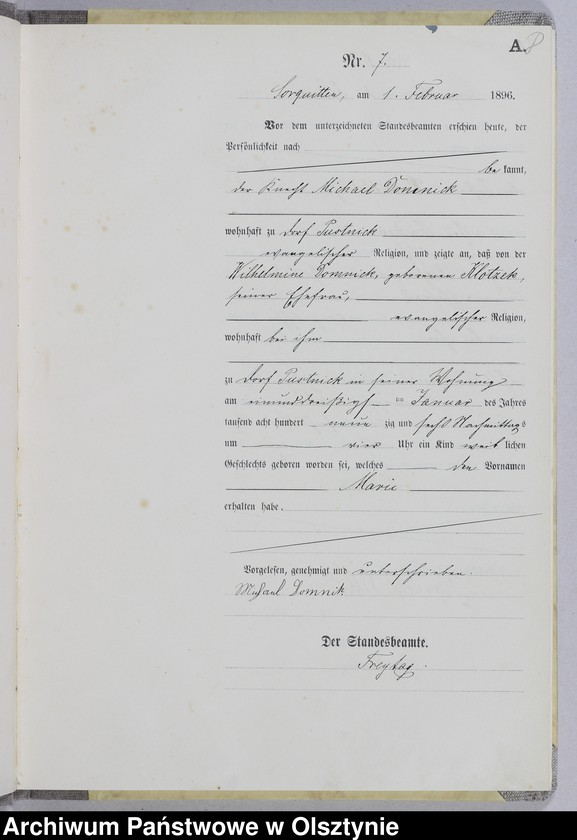 A.
Nr. 7.
Sorquitten, am 1. Februar 1896.
Vor dem unterzeichneten Standesbeamten erschien heute, der
Persönlichkeit nach
be kannt,
der Knecht Michael Domnick
wohnhaft zu Dorf Pustnick
evangelischer Religion, und zeigte an, daß von der
Wilhelmine Domnick, geborenen Klotzek,
seiner Ehefrau,
evangelischer Religion,
wohnhaft bei ihm
zu Dorf Pustnick in seiner Wohnung
am einunddreißigsten Januar des Jahres
tausend acht hundert neun zig und sechs Nachmittags
um vier Uhr ein Kind weib lichen
Geschlechts geboren worden sei, welches den Vornamen
Marie
erhalten habe.
Vorgelesen, genehmigt und unterschrieben.
Michael Domnik
Der Standesbeamte.
Freytag.
Archiwum Państwowe w Olsztynie